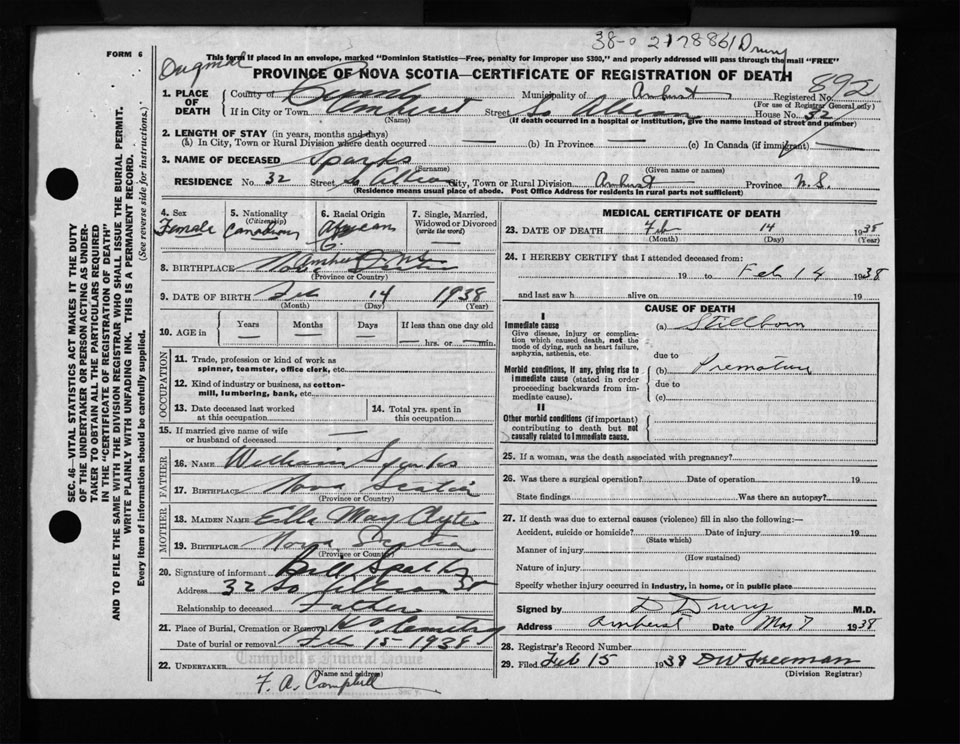 38-0 217886 Drury
FORM 6
This form if placed in an envelope, marked "Dominion Statistics—Free, penalty for improper use $300," and properly addressed will pass through the mail "FREE"
PROVINCE OF NOVA SCOTIA—CERTIFICATE OF REGISTRATION OF DEATH
892
1. PLACE OF DEATH
County of Municipality of Amherst Registered No.
(For use of Registrar General only)
If in City or Town Amherst Street So Albion House No. 32
(Name) (If death occurred in a hospital or institution, give the name instead of street and number)
2. LENGTH OF STAY (in years, months and days)
(a) In City, Town or Rural Division where death occurred — (b) In Province — (c) In Canada (if immigrant) —
3. NAME OF DECEASED Sparks
(Surname) (Given name or names)
RESIDENCE No. 32 Street So Albion City, Town or Rural Division Amherst Province N.S.
(Residence means usual place of abode. Post Office Address for residents in rural parts not sufficient)
4. Sex Female
5. Nationality (Citizenship) Canadian
6. Racial Origin African
7. Single, Married, Widowed or Divorced (write the word) —
8. BIRTHPLACE Amherst N.S. Nova Scotia
(Province or Country)
9. DATE OF BIRTH Feb 14 1938
(Month) (Day) (Year)
10. AGE in Years Months Days If less than one day old
— — — — hrs. or — min.
OCCUPATION
11. Trade, profession or kind of work as spinner, teamster, office clerk, etc.
12. Kind of industry or business, as cotton-mill, lumbering, bank, etc.
13. Date deceased last worked at this occupation
14. Total yrs. spent in this occupation
15. If married give name of wife or husband of deceased —
FATHER
16. NAME William Sparks
17. BIRTHPLACE Nova Scotia
(Province or Country)
MOTHER
18. MAIDEN NAME Ella May Clyte
19. BIRTHPLACE Nova Scotia
(Province or Country)
20. Signature of informant Bill Sparks
Address 32 So Albion St
Relationship to deceased Father
21. Place of Burial, Cremation or Removal Cemetery
Date of burial or removal Feb 15-1938
22. UNDERTAKER Campbell's Funeral Home
(Name and address)
F. A. Campbell
MEDICAL CERTIFICATE OF DEATH
23. DATE OF DEATH Feb 14 1938
(Month) (Day) (Year)
24. I HEREBY CERTIFY that I attended deceased from:
19 to Feb 14 1938
and last saw h alive on 19
CAUSE OF DEATH
I
Immediate cause
Give disease, injury or complication which caused death, not the mode of dying, such as heart failure, asphyxia, asthenia, etc.
(a) Stillborn
due to
Morbid conditions, if any, giving rise to immediate cause (stated in order proceeding backwards from immediate cause).
(b) Premature
due to
(c)
II
Other morbid conditions (if important) contributing to death but not causally related to immediate cause.
25. If a woman, was the death associated with pregnancy?
26. Was there a surgical operation? Date of operation 19
State findings Was there an autopsy?
27. If death was due to external causes (violence) fill in also the following:—
Accident, suicide or homicide? Date of injury 19
(State which)
Manner of injury
(How sustained)
Nature of injury
Specify whether injury occurred in industry, in home, or in public place
Signed by D Drury M.D.
Address Amherst Date May 7 1938
28. Registrar's Record Number
29. Filed Feb 15 1938 DW Freeman
(Division Registrar)
SEC. 46—VITAL STATISTICS ACT MAKES IT THE DUTY
OF THE UNDERTAKER OR PERSON ACTING AS UNDERTAKER TO OBTAIN ALL THE PARTICULARS REQUIRED
IN THE "CERTIFICATE OF REGISTRATION OF DEATH"
AND TO FILE THE SAME WITH THE DIVISION REGISTRAR WHO SHALL ISSUE THE BURIAL PERMIT.
WRITE PLAINLY WITH UNFADING INK. THIS IS A PERMANENT RECORD.
Every item of information should be carefully supplied. (See reverse side for instructions.)